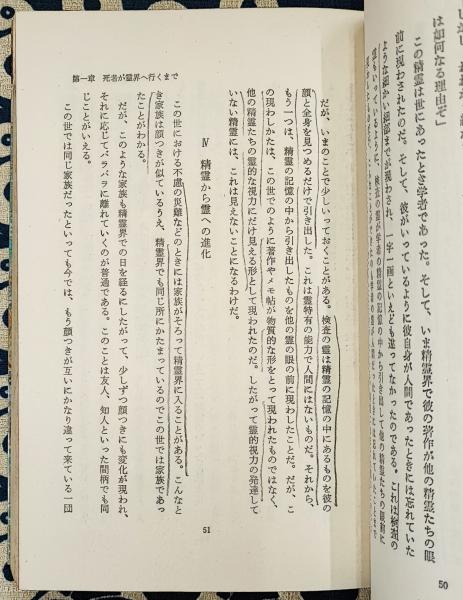 は如何なる理由ぞ」
この精霊は世にあったとき学者であった。そして、いま精霊界で彼の著作が他の精霊たちの眼
前に現わされたのだ。そして、彼がいっているように彼自身が人間であったときには忘れていた
ような細かい細部までが現わされ、一字一画といえども違ってなかったのである。これは検査の
霊もいっているように、検査の霊が学者の精霊の記憶の中から引き出して他の精霊たちの眼前に
50
第一章 死者が霊界へ行くまで
だが、いまのことで少しいっておくことがある。検査の霊は精霊の記憶の中にあるものを彼の
顔と全身を見つめるだけで引き出した。これは霊特有の能力で人間にはないものだ。それから、
もう一つは、精霊の記憶の中から引き出したものを他の霊の眼の前に現わしたことだ。だが、こ
の現わしかたは、この世でのように著作やメモ帖が物質的な形をとって現われたものではなく、
他の精霊たちの霊的な視力にだけ見える形として現われたのだ。したがって霊的視力の発達して
いない精霊には、これは見えないことになるわけだ。
Ⅳ 精霊から霊への進化
この世における不慮の災難などのときには家族がそろって精霊界に入ることがある。こんなと
き家族は顔つきが似ているうえ、精霊界でも同じ所にかたまっているのでこの世では家族であっ
たことがわかる。
だが、このような家族も精霊界での日を経るにしたがって、少しずつ顔つきにも変化が現われ、
それに応じてバラバラに離れていくのが普通である。このことは友人、知人といった間柄でも同
じことがいえる。
この世では同じ家族だったといっても今では、もう顔つきが互いにかなり違って来ている一団
51